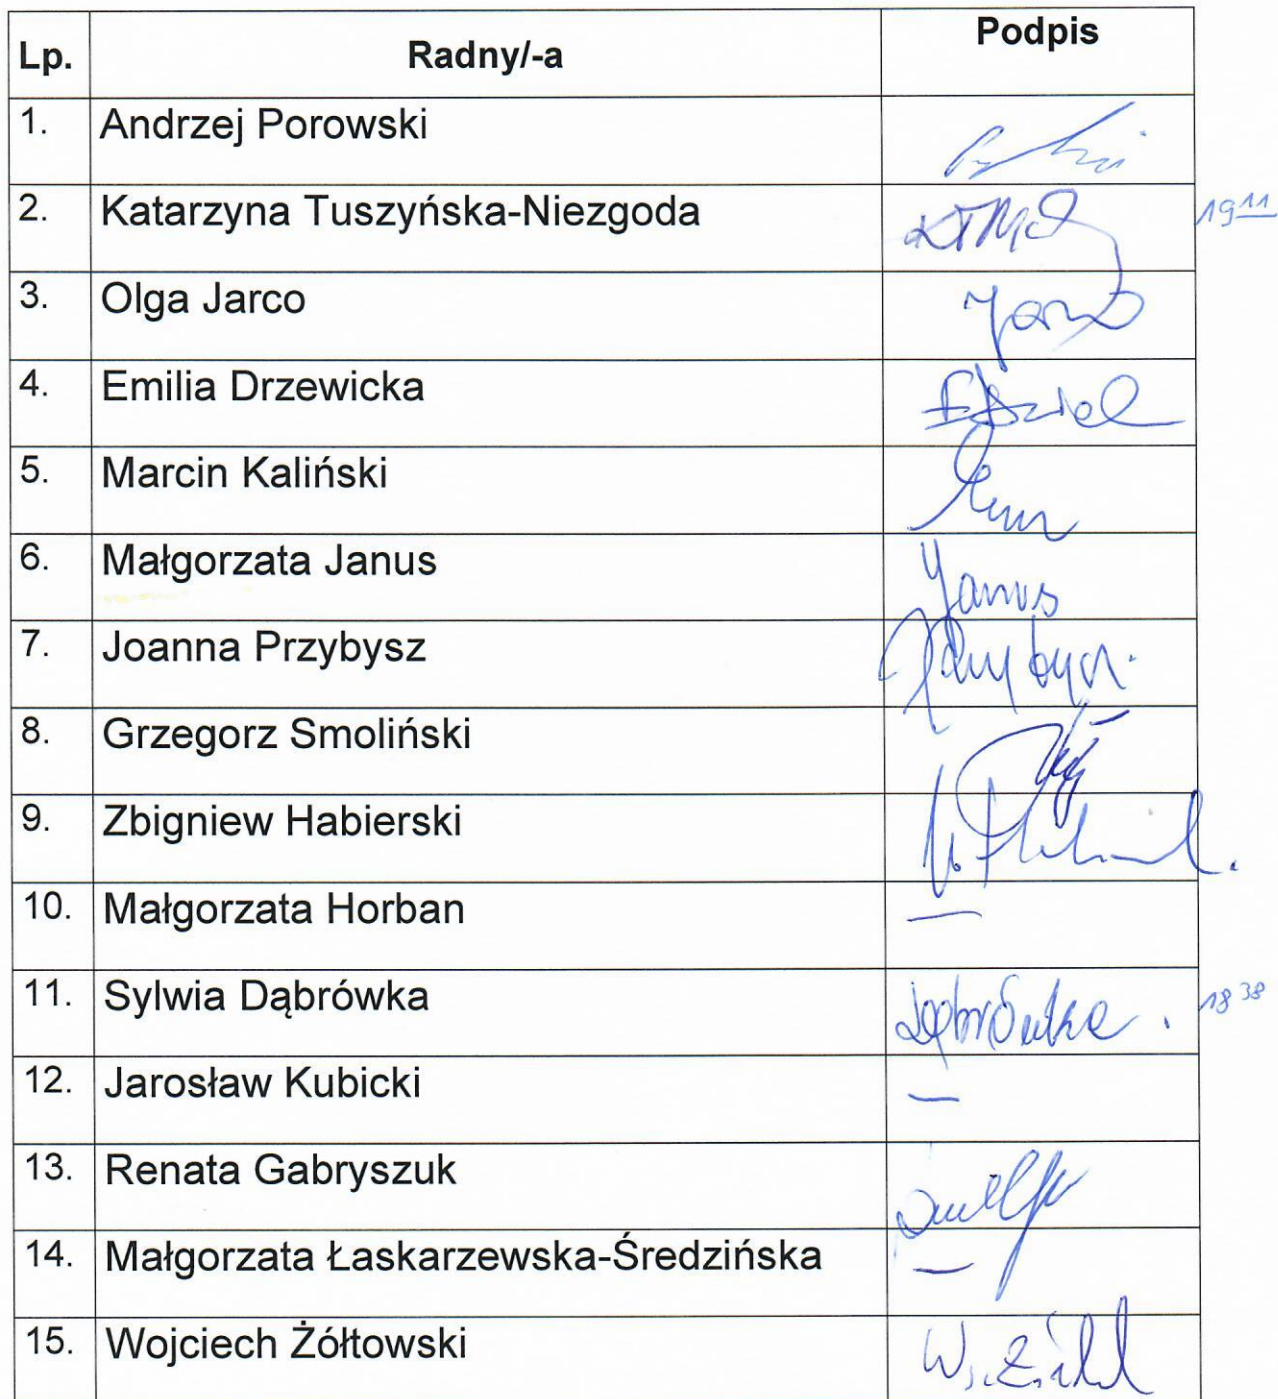 Lp. Radny/-a Podpis
1. Andrzej Porowski
2. Katarzyna Tuszyńska-Niezgoda 19 11
3. Olga Jarco
4. Emilia Drzewicka
5. Marcin Kaliński
6. Małgorzata Janus Janus
7. Joanna Przybysz
8. Grzegorz Smoliński
9. Zbigniew Habierski
10. Małgorzata Horban —
11. Sylwia Dąbrówka Dąbrówka 18 38
12. Jarosław Kubicki —
13. Renata Gabryszuk
14. Małgorzata Łaskarzewska-Średzińska —
15. Wojciech Żółtowski